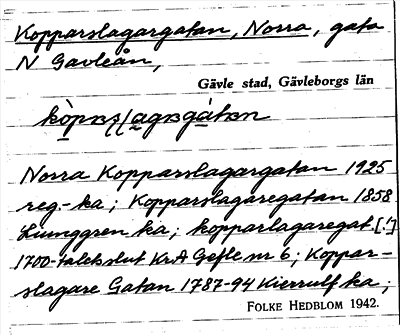 Kopparslagargatan, Norra, gata
N Gavleån,
Gävle stad, Gävleborgs län
Norra Kopparslagargatan 1925
reg.-ka; Kopparslagaregatan 1858
Ljunggren ka; kopparlagaregat. [!]
1700-talets slut Kr.A Gefle nr 6; Koppar-
slagare Gatan 1787-94 Kierrulf ka;
FOLKE HEDBLOM 1942.